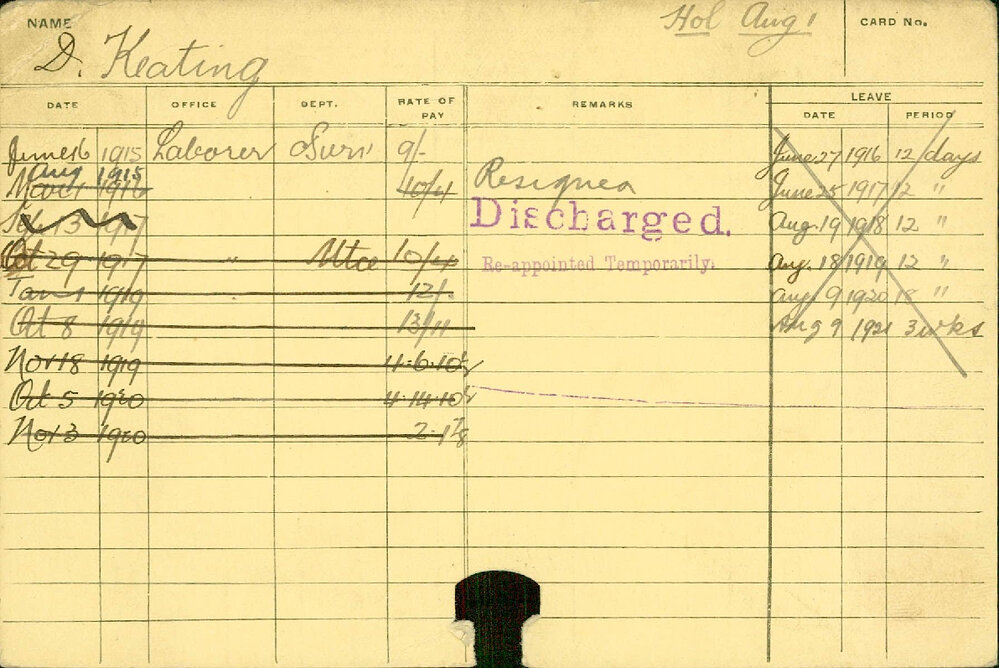 NAME D. Keating Hol Aug 1 CARD No.
DATE OFFICE DEPT. RATE OF PAY REMARKS LEAVE
DATE PERIOD
June 16 1915 Laborer 9/- June 27 1916 12 days
Aug 1915
1916 10/4 Resigned June 25 1917 12 "
13 1917 Discharged. Aug. 19 1918 12 "
Oct 29 1917 " Mtce 10/4 Re-appointed Temporarily. Aug. 18 1919 12 "
1919 12/- Aug 9 1920 18 "
Oct 8 1919 13/11 Aug 9 1921 3 wks
Nov 18 1919 4.6.10½
Oct 5 1920 4.14.10½
Nov 3 1920 2.1⅞